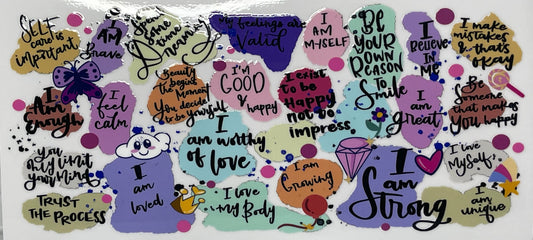 SELF
care is
important
I
AM
Brave
Spend
Some
time
Dreaming
My feelings are
Valid
I
AM
MYSELF
BE
YOUR
OWN
REASON
To
Smile
I
BELIEVE
IN
ME
I make
mistakes
& that's
okay
I
Am
Enough
I
feel
calm
Beauty
the begins
the Moment
You decide
to be Yourself
I'm
GOOD
&
happy
I exist
to be
Happy
not to
impress
I
am
great
Be
Someone
that makes
you happy
you
only limit
your mind
I
am worthy
of love
I love
Myself
TRUST
THE PROCESS
I
am
loved
I love
my Body
I am
Growing
I
am
Strong
I
am
unique